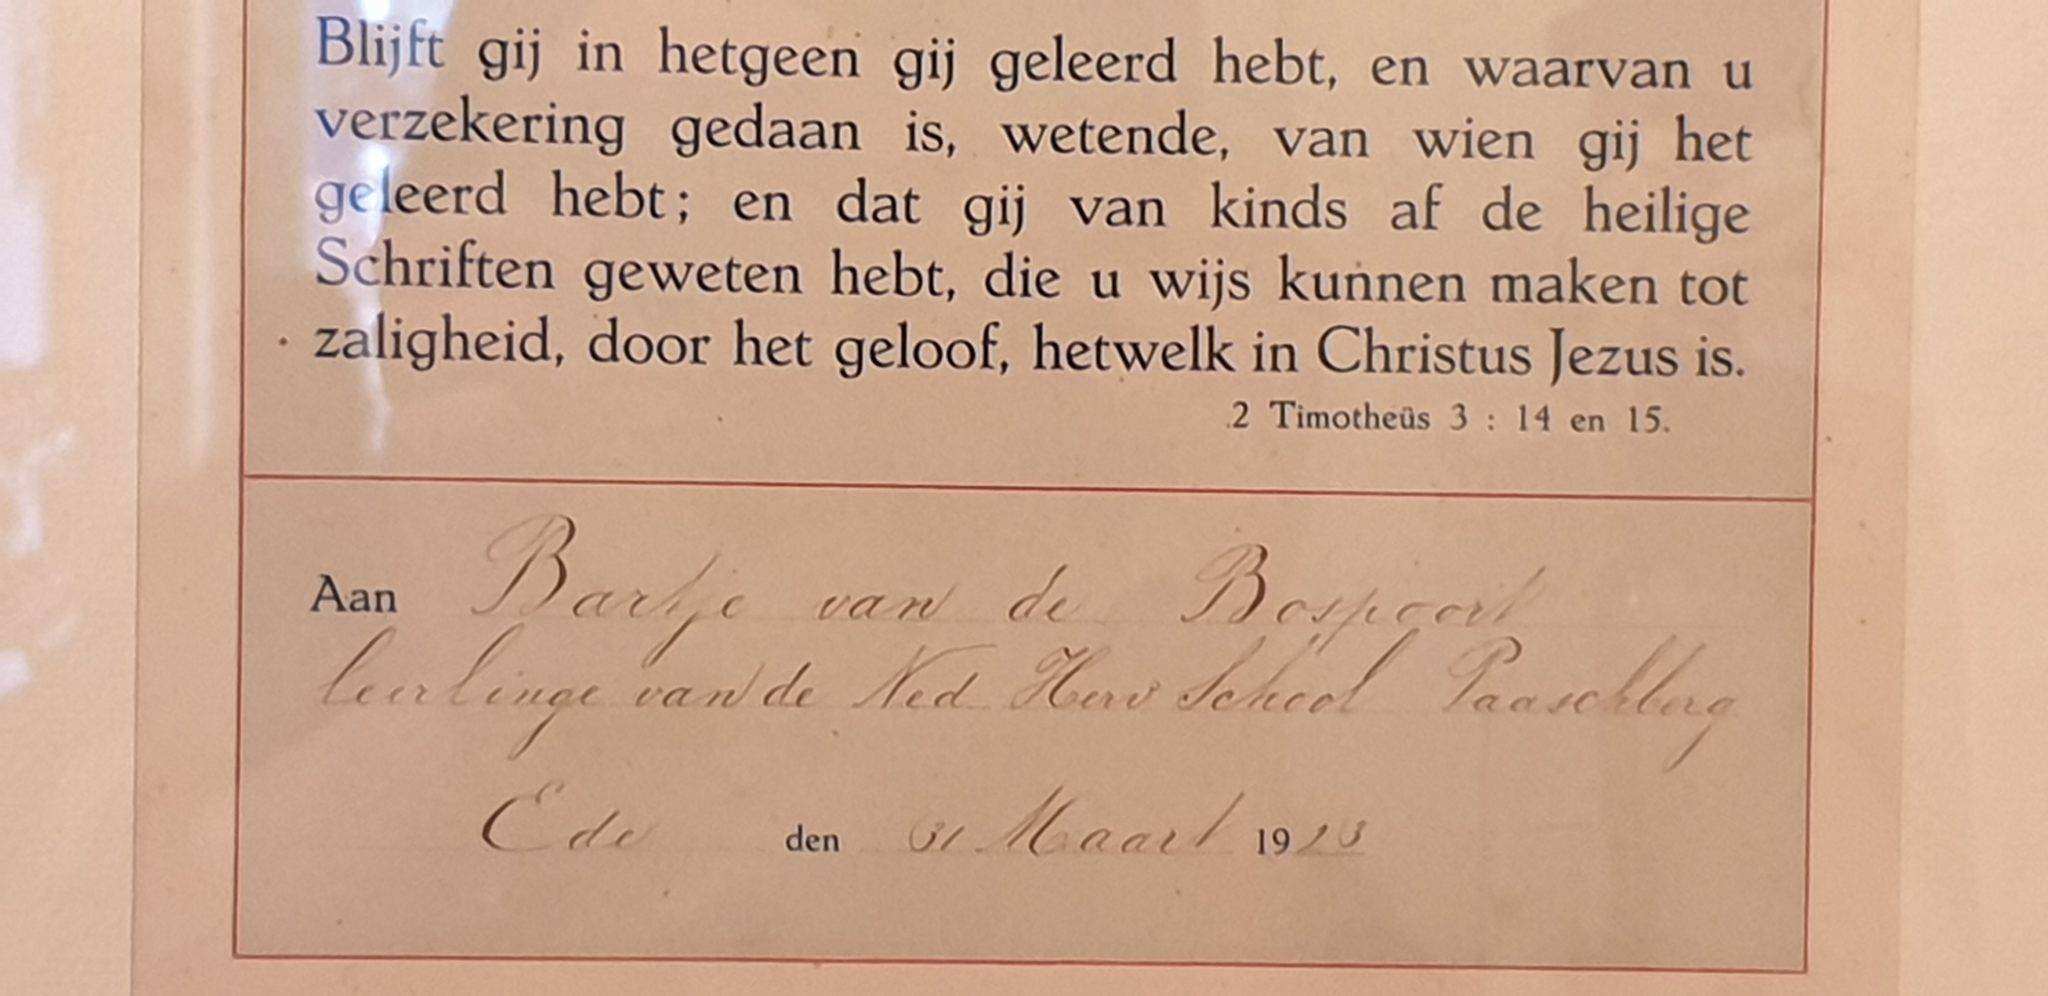 Blijft gij in hetgeen gij geleerd hebt, en waarvan u
verzekering gedaan is, wetende, van wien gij het
geleerd hebt; en dat gij van kinds af de heilige
Schriften geweten hebt, die u wijs kunnen maken tot
zaligheid, door het geloof, hetwelk in Christus Jezus is.
2 Timotheüs 3 : 14 en 15.
Aan Bartje van de Bospoort
leerlinge van de Ned Herv School Paaschberg
Ede den 31 Maart 1923